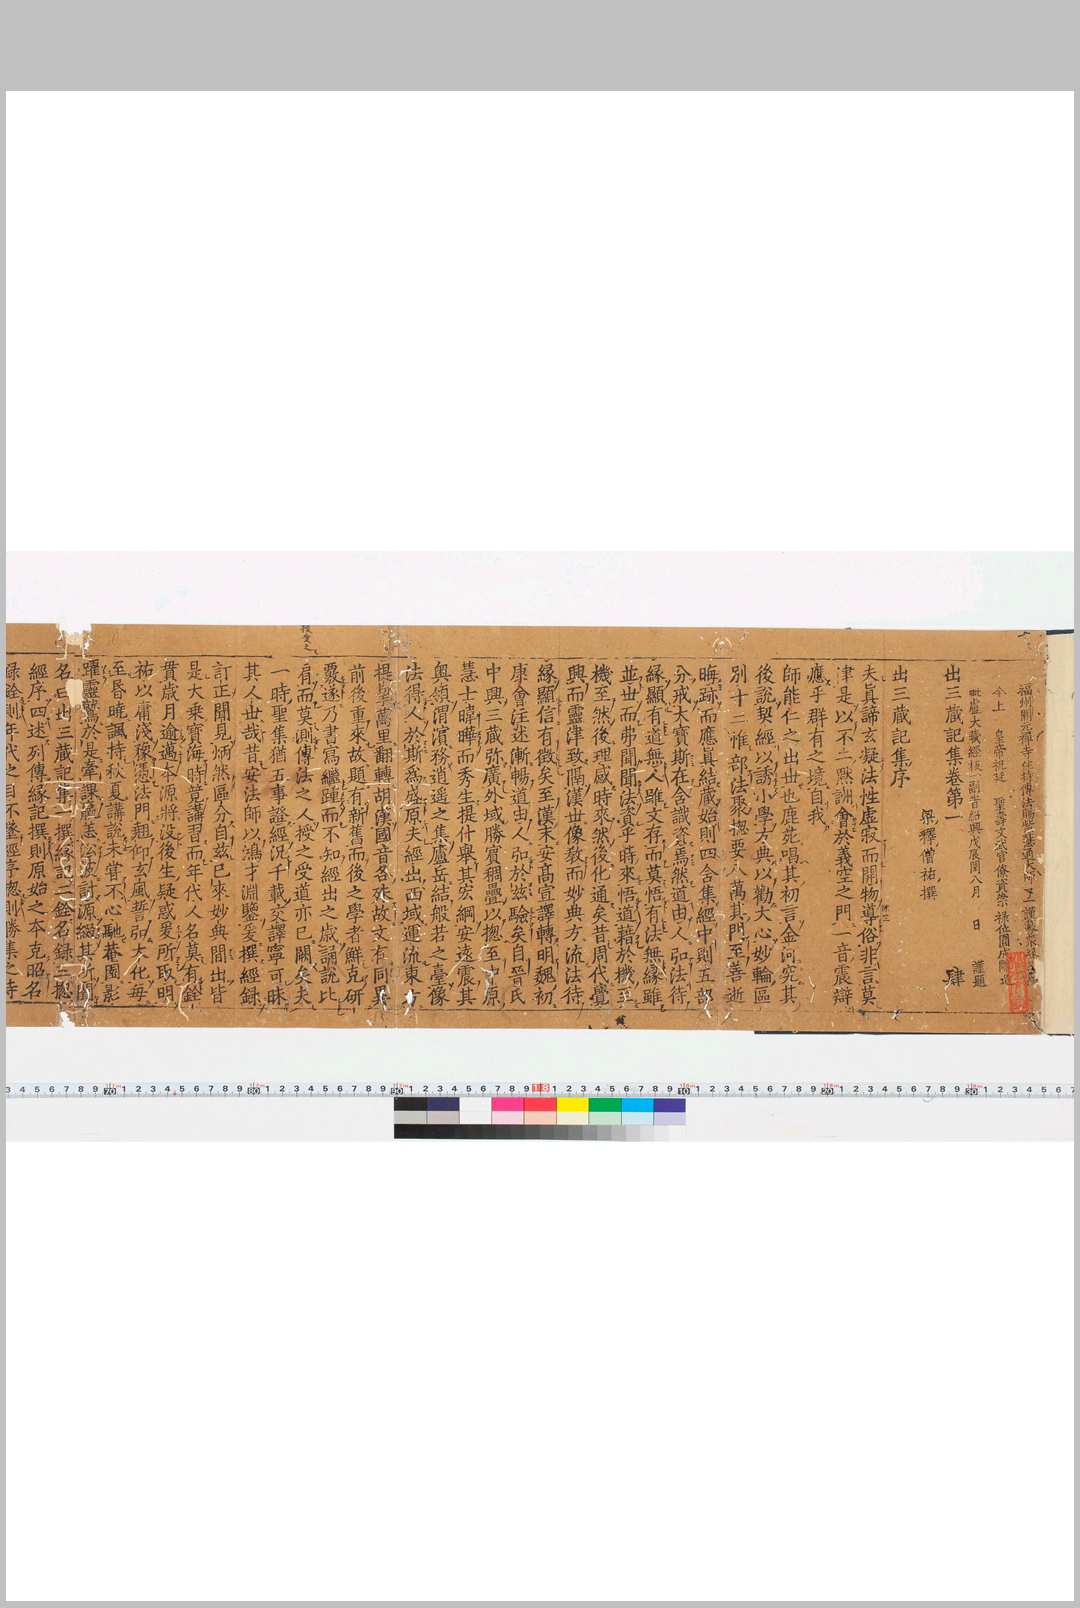 福州開元禪寺住持傳法賜紫慧通大師了一謹募衆緣恭為
今上 皇帝祝延 聖壽文武官僚資崇 祿位圓成雕造
毗盧大藏經板一副旹紹興戊辰閏八月 日 謹題
出三藏記集卷第一 肆
梁釋僧祐撰
出三藏記集序
夫真諦玄凝法性虛寂而開物導俗非言莫
津是以不二默訓會於義空之門一音震辯
應乎群有之境自我
師能仁之出世也鹿苑唱其初言金河究其
後說契經以誘小學方典以勸大心妙輪區
別十二惟部法聚揔要八萬其門至善逝
晦跡而應真結藏始則四含集經中則五部
分戒大寶斯在含識資焉然道由人弘法待
緣顯有道無人雖文存而莫悟有法無緣雖
並世而弗聞聞法資乎時來悟道藉於機至
機至然後理感時來然後化通矣昔周代覺
興而靈津致隔漢世像教而妙典方流法待
緣顯信有徵矣至漢末安高宣譯轉明魏初
康會注述漸暢道由人弘於茲驗矣自晉氏
中興三藏弥廣外域勝賓稠疊以揔至中原
慧士暐曄而秀生提什舉其宏綱安遠震其
奧領渭濱務逍遙之集廬岳結般若之臺像
法得人於斯爲盛原夫經出西域運流東方
提挈萬里翻轉胡漢國音各殊故文有同異
前後重來故題有新舊而後之學者鮮克研
覈遂乃書寫繼踵而不知經出之歲誦說比
肩而莫測傳法之人授之受道亦已闕矣夫
一時聖集猶五事證經况千載交譯寧可昧
其人世哉昔安法師以鴻才淵鑒爰撰經録
訂正聞見炳然區分自茲已來妙典間出皆
是大乘寶海時競講習而年代人名莫有銓
貫歲月逾邁本源將没後生疑惑奚所取明
祐以庸淺豫憑法門翹仰玄風誓弘大化每
至昏曉諷持秋夏講說未甞不心馳菴園影
躍靈鷲於是牽課羸恙沿波討源綴其所聞
名曰出三藏記集一撰緣記二銓名録三揔
經序四述列傳緣記撰則原始之本克昭名
録銓則年代之目不墜經序揔則勝集之時